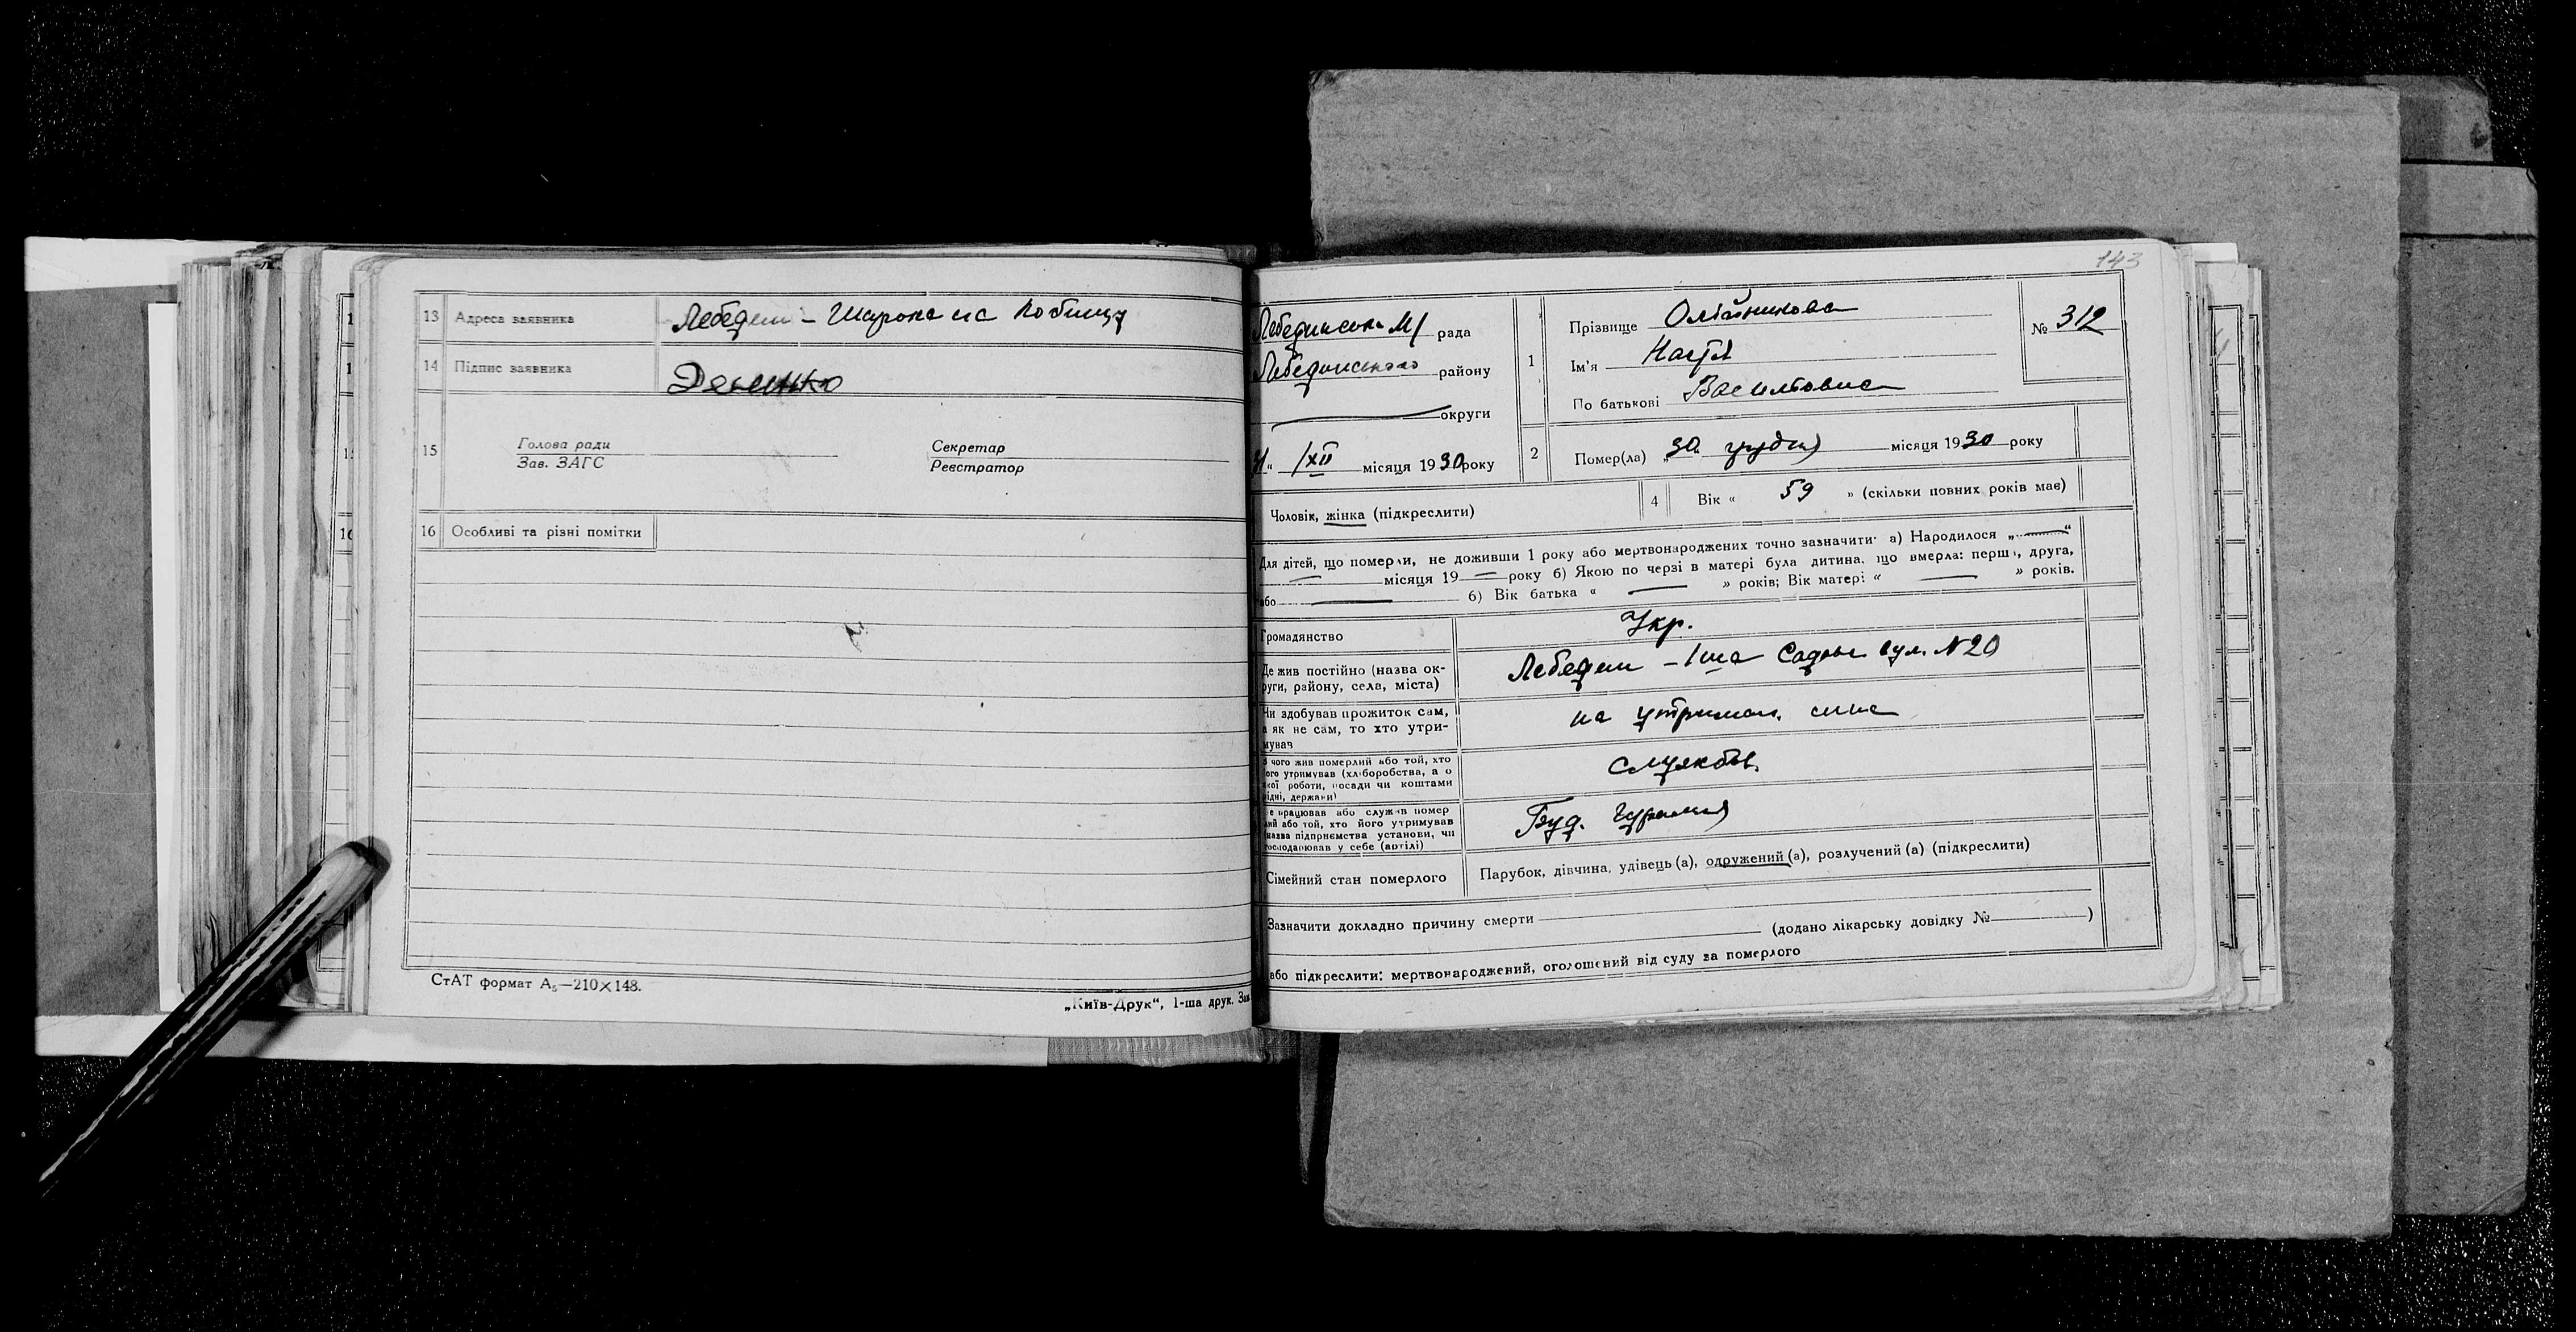 13 Адреса заявника Лебедин – Широка на Кобищу
14 Підпис заявника
15 Голова ради Секретар
Зав. ЗАГС Реєстратор
16 Особливі та різні помітки
СтАТ формат А₅—210×148.
„Київ-Друк“, 1-ша друк. Зам
143
Лебединська М/ рада
Лебединського району
округи
/XII місяця 1930 року
1 Прізвище Олійникова
Ім'я Настя
По батькові Василівна
№ 312
2 Помер(ла) „30 грудня місяця 1930 року
Чоловік, жінка (підкреслити)
4 Вік « 59 » (скільки повних років має)
Для дітей, що померли, не доживши 1 року або мертвонароджених точно зазначити: а) Народилося „ “
місяця 19 року б) Якою по черзі в матері була дитина, що вмерла: перша, друга,
або 6) Вік батька « » років; Вік матері « » років.
Громадянство Укр.
Де жив постійно (назва ок-
руги, району, села, міста) Лебедин – 1ша Садова вул. №20
Чи здобував прожиток сам,
а як не сам, то хто утри-
мував на утриман. сина
З чого жив померлий або той, хто
його утримував (хліборобства, а о
якої роботи, посади чи коштами
рідні, держави) службы.
Де працював або служив помер
лий або той, хто його утримував
(назва підприємства установи, чи
господарював у себе (артілі) Буд.
Сімейний стан померлого Парубок, дівчина, удівець (а), одружений (а), розлучений (а) (підкреслити)
Зазначити докладно причину смерти
(додано лікарську довідку № )
або підкреслити: мертвонароджений, оголошений від суду за померлого